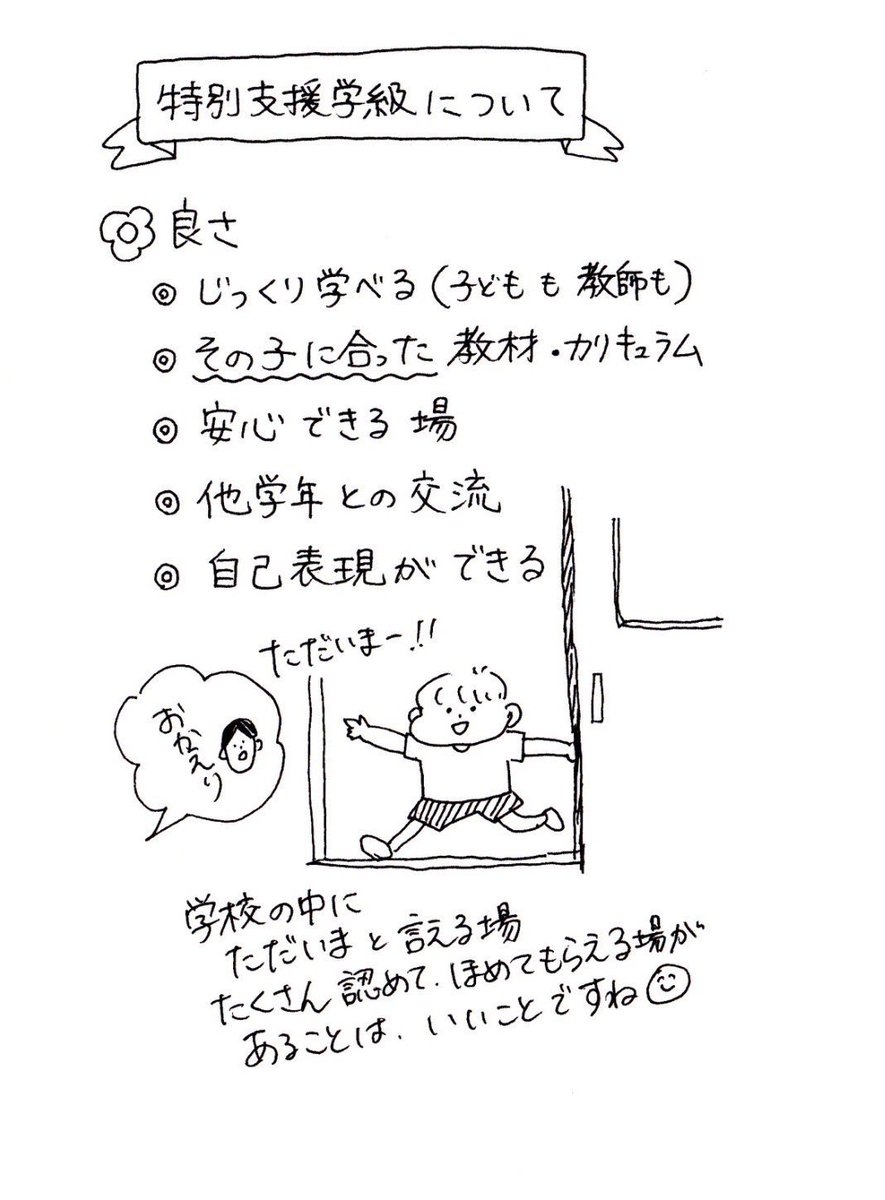 特別支援学級について
良さ
◎ じっくり学べる(子どもも教師も)
◎ その子に合った教材・カリキュラム
◎ 安心できる場
◎ 他学年との交流
◎ 自己表現ができる
ただいまー!!
おかえり
学校の中に
ただいまと言える場
たくさん認めて、ほめてもらえる場が
あることは、いいことですね